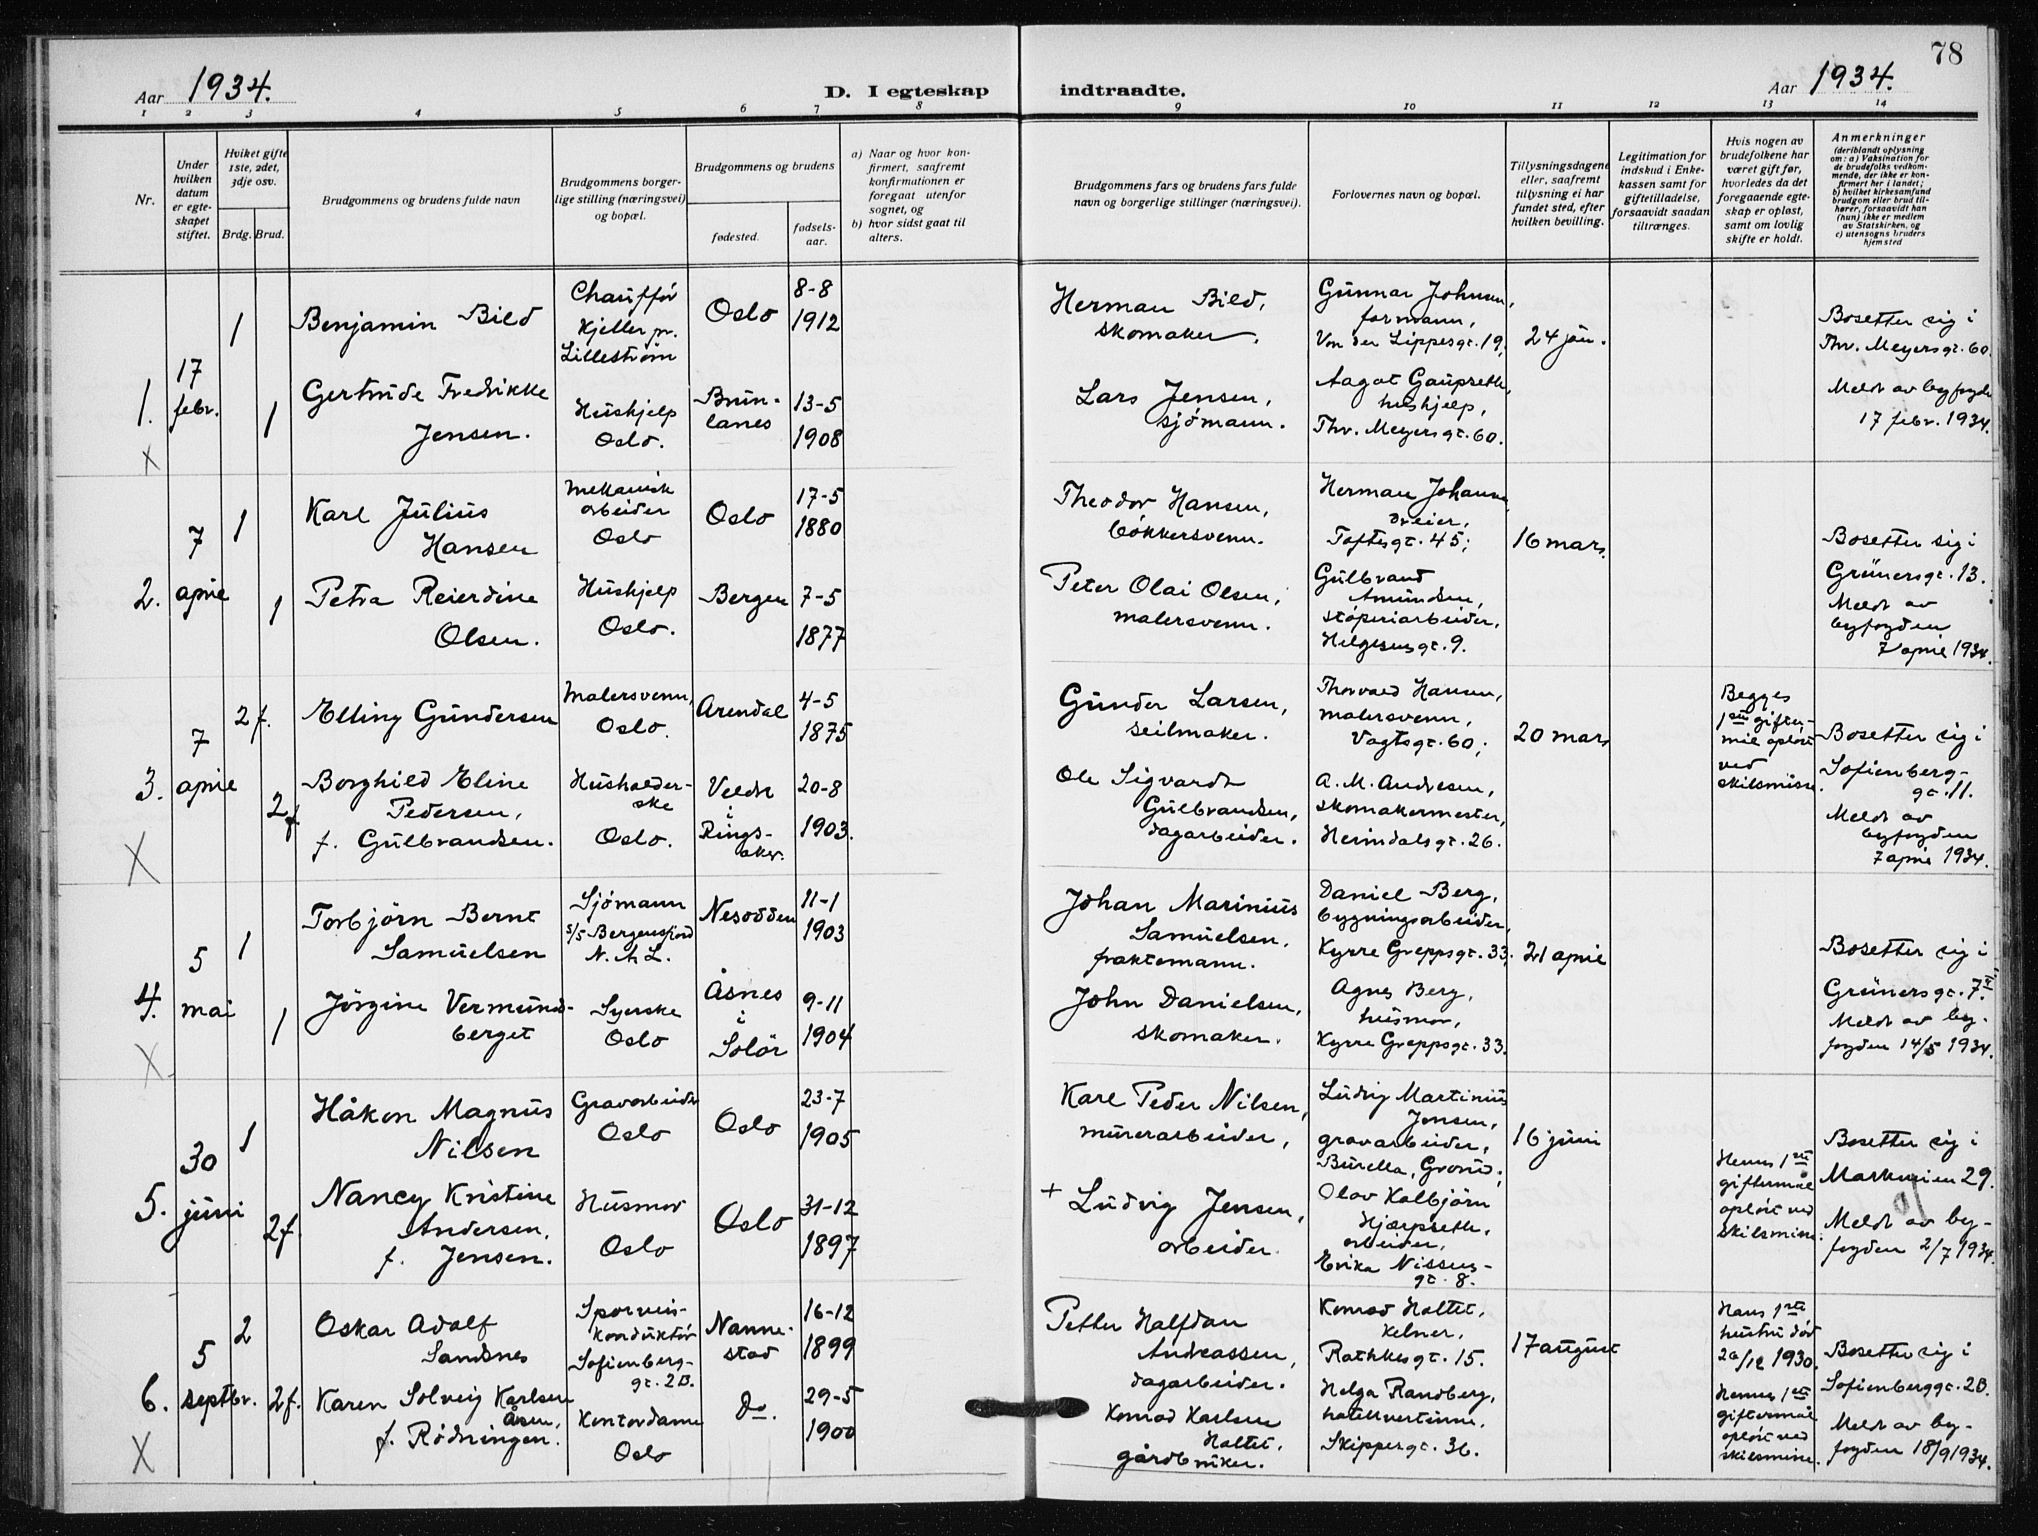 78
Aar 1934.
D. I egteskap indtraadte.
Aar 1934.
1 2 3 4 5 6 7 8 9 10 11 12 13 14
Nr.
Under hvilken datum er egteskapet stiftet.
Hviket gifte 1ste, 2det, 3dje osv.
Brdg. Brud.
Brudgommens og brudens fulde navn
Brudgommens borgerlige stilling (næringsvei) og bopæl.
Brudgommens og brudens
fødested.
fødselsaar.
a) Naar og hvor konfirmert, saafremt konfirmationen er foregaat utenfor sognet, og
b) hvor sidst gaat til alters.
Brudgommens fars og brudens fars fulde navn og borgerlige stillinger (næringsvei).
Forlovernes navn og bopæl.
Tillysningsdagene eller, saafremt tillysning ei har fundet sted, efter hvilken bevilling.
Legitimation for indskud i Enkekassen samt for giftetilladelse, forsaavidt saadan tiltrænges.
Hvis nogen av brudefolkene har været gift før, hvorledes da det foregaaende egteskap er opløst, samt om lovlig skifte er holdt.
Anmerkninger
(deriblandt oplysning om: a) Vaksination for de brudefolks vedkommende, der ikke er konfirmert her i landet; b) hvilket kirkesamfund brudgom eller brud tilhører, forsaavidt han (hun) ikke er medlem av Statskirken, og c) utensogns bruders hjemsted
1.
17
febr.
1
Benjamin Bild
Chauffør
Kjeller pr.
Lillestrøm
Oslo
8-8
1912
Herman Bild,
skomaker.
Gunnar Johnsen,
formann,
Von der Lippesgt. 19,
24 jan.
Bosetter sig i
Thv. Meyersgt. 60.
1
Gertrude Fredrikke
Jensen.
Hushjelp
Oslo.
Brunlanes
13-5
1908
Lars Jensen,
sjømann.
Aagot Gaupseth,
hushjelp,
Thv. Meyersgt. 60.
Meldt av byfogden
17 febr. 1934.
2.
7
april
1
Karl Julius
Hansen
Mekanisk
arbeider
Oslo
Oslo
17-5
1880
Theodor Hansen,
bøkkersvenn.
Herman Johansen
dreier,
Toftesgt. 45;
16 mars.
Bosetter sig i
Grünersgt. 13.
1
Petra Reierdine
Olsen.
Hushjelp
Oslo.
Bergen
7-5
1877
Peter Olai Olsen,
malersvenn.
Gulbrand
Amundsen,
støperiarbeider,
Helgesensgt. 9.
Meldt av
byfogden
7 april 1934.
3.
7
april
2 f.
Elling Gundersen
Malersvenn,
Oslo.
Arendal
4-5
1875
Gunder Larsen,
seilmaker.
Thorvald Hansen,
malersvenn,
Vogtsgt. 60;
20 mars
Begges
1ste giftermål opløst
ved
skilsmisse.
Bosetter sig i
Sofienberggt. 11.
2 f.
Borghild Eline
Pedersen,
f. Gulbrandsen.
Husholderske
Oslo.
Veldre
i
Ringsaker.
20-8
1903.
Ole Sigvardt
Gulbrandsen,
dagarbeider.
A. M. Andresen,
skomakermester,
Heimdalsgt. 26.
Meldt av
byfogden
7 april 1934.
4.
5
mai
1
Torbjørn Bernt
Samuelsen
Sjømann
s/s Bergensfjord
N. A. L.
Nesodden
11-1
1903
Johan Marinius
Samuelsen,
fraktemann.
Daniel Berg,
bygningsarbeider,
Kyrre Greppsgt. 33.
21 april
Bosetter sig i
Grünersgt. 7.
1
Jørgine Vermundsberget
Syerske
Oslo
Åsnes
i
Solør
9-11
1904
John Danielsen,
skomaker.
Agnes Berg,
husmor,
Kyrre Greppsgt. 33.
Meldt av byfogden 14/5 1934.
5.
30
juni
1
Håkon Magnus
Nilsen
Gravarbeider
Oslo
Oslo
23-7
1905
Karl Peder Nilsen,
murerarbeider,
Ludvig Martinius
Jensen,
gravarbeider,
Burella, Grorud.
16 juni
Bosetter sig i
Markveien 29.
2 f.
Nancy Kristine
Andersen,
f. Jensen.
Husmor
Oslo
Oslo
31-12
1897
+ Ludvig Jensen,
arbeider.
Olav Kolbjørn
Hjærpseth,
arbeider,
Erika Nissensgt. 8.
Hennes 1ste
giftermål
opløst ved
skilsmisse.
Meldt av byfogden 2/7 1934.
6.
5
septbr.
2
Oskar Adolf
Sandsnes
Sporveiskonduktør
Sofienberggt. 2B.
Nannestad
16-12
1899
Petter Halfdan
Andreassen,
dagarbeider.
Konrad Holtet,
kelner,
Rathkesgt. 15.
17 august
Hans 1ste
hustru død
20/12 1930.
Bosetter sig i
Sofienberggt. 2B.
2 f.
Karen Solveig Karlsen
Åsen,
f. Rødningen.
Kontordame
Oslo
do.
29-5
1900
Konrad Karlsen
Holtet,
gårdbruker.
Helga Randberg,
hotellvertinne,
Skippergt. 36.
Hennes 1ste
giftermål
opløst ved
skilsmisse.
Meldt av byfogden 18/9 1934.